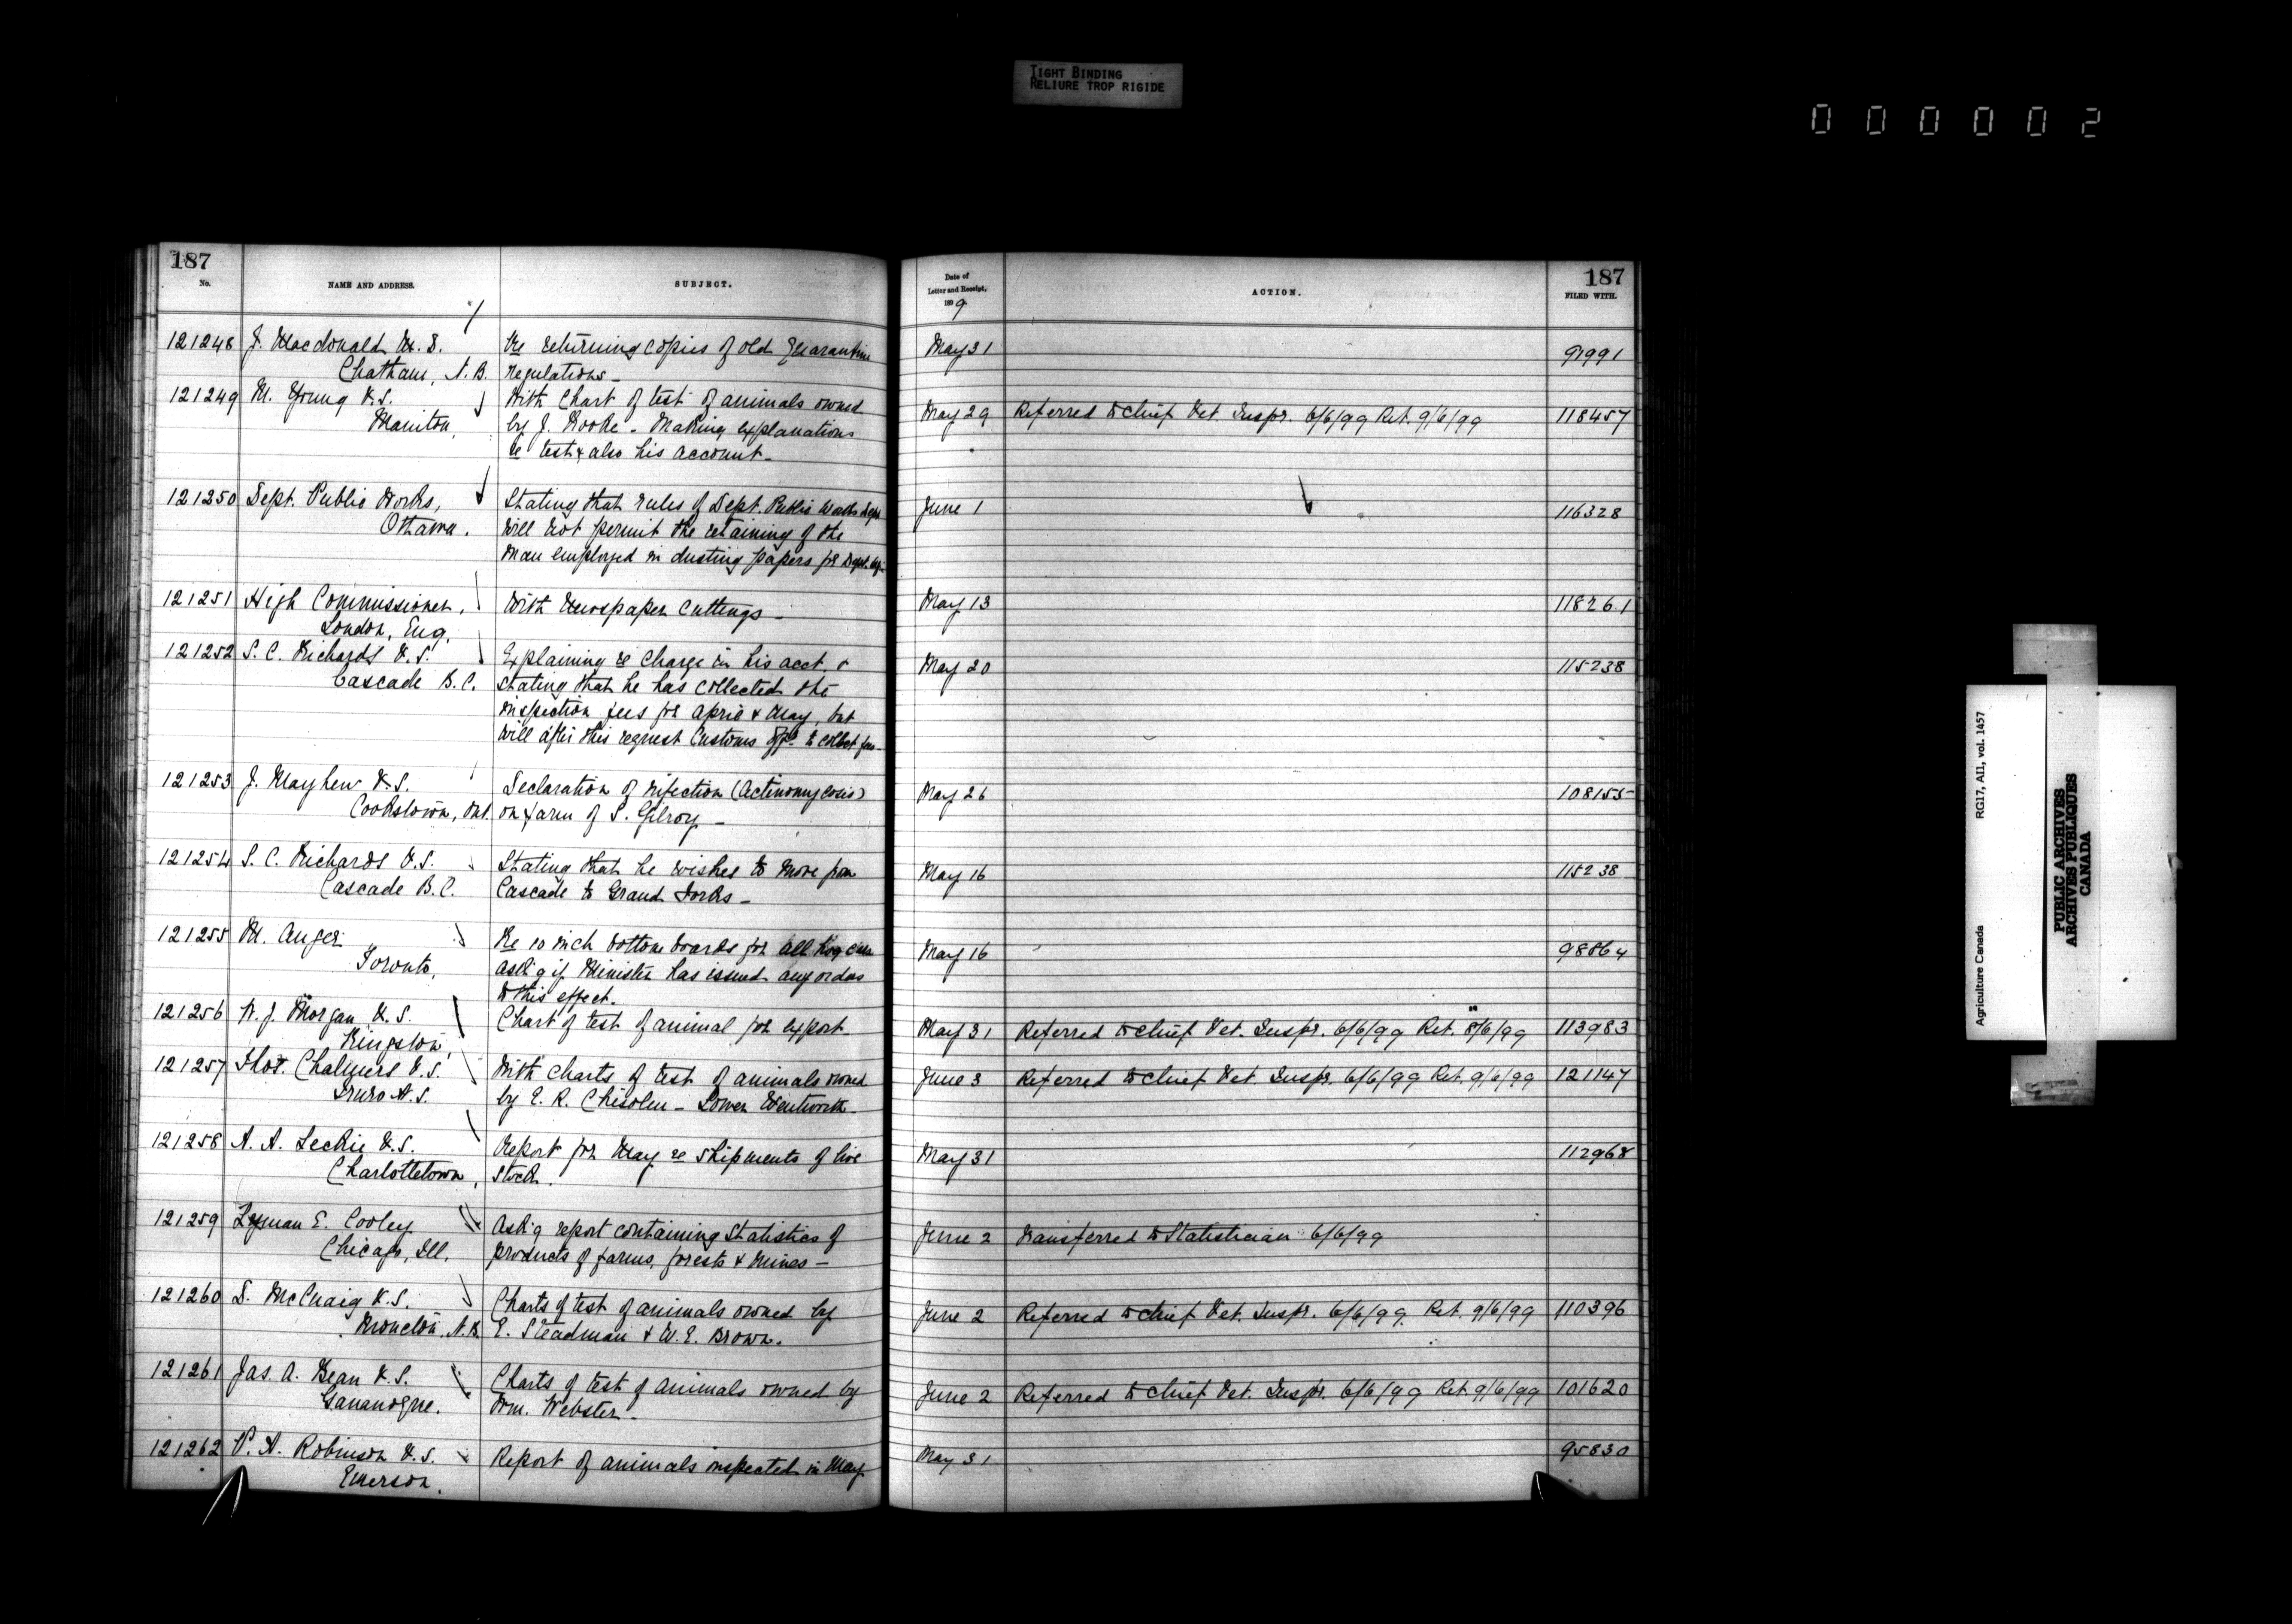 TIGHT BINDING
RELIURE TROP RIGIDE
000002
187
No.
NAME AND ADDRESS.
SUBJECT.
Date of
Letter and Receipt,
1899
ACTION.
187
FILED WITH.
121248 J. Macdonald M.D. Re returning copies of old Quarantine May 31 91991
Chatham, N.B. regulations_
121249 M. Young V.S. With Chart of test of animals owned May 29 Referred to Chief Vet Inspr. 6/6/99 Ret. 9/6/99 118457
Manitou, by J. - Making explanations
re test & also his account_
121250 Dept. Public Works, Stating that rules of Dept. Public Works June 1 116328
Ottawa. will not permit the retaining of the
man employed in dusting papers for Dept.
121251 High Commissioner, With Newspaper Cuttings_ May 13 118261
London, Eng.
121252 S. C. Richards V.S. Explaining re Charge in his acct & May 20 115238
Cascade B.C. stating that he has collected the
inspection fees for April & May, but
will after this request Customs to collect fees_
121253 J. Mayhew V.S. Declaration of infection (Actinomycosis) May 26 108155
Cookstown, Ont. on farm of S. Gilroy_
121254 S. C. Richards V.S. Stating that he wishes to move from May 16 115238
Cascade B.C. Cascade to Grand Forks_
121255 M. Auger Re 10 inch bottom boards for all hog cars May 16 98864
Toronto, ask'g if Minister has issued any orders
to this effect.
121256 W. J. Morgan V.S. Chart of test of animal for export May 31 Referred to Chief Vet. Inspr. 6/6/99 Ret. 8/6/99 113983
Kingston,
121257 Thos. Chalmers V.S. With charts of test of animals owned June 3 Referred to Chief Vet. Inspr. 6/6/99 Ret. 9/6/99 121147
Truro N.S. by E. R. Chisolm - Lower Wentworth_
121258 A. A. Leckie V.S. Report for May re shipments of live May 31 112968
Charlottetown, stock.
121259 Lyman E. Cooley Ask'g report containing Statistics of June 2 Transferred to Statistician 6/6/99
Chicago, Ill. products of farms, forests & mines_
121260 D. McCuaig V.S. Charts of test of animals owned by June 2 Referred to Chief Vet. Inspr. 6/6/99 Ret. 9/6/99 110396
Moncton, N.B. E. Steadman & W. E. Brown.
121261 Jas. A. Bean V.S. Charts of test of animals owned by June 2 Referred to Chief Vet. Inspr. 6/6/99 Ret. 9/6/99 101620
Gananoque. Wm. Webster_
121262 P. A. Robinson V.S. Report of animals inspected in May. May 31 95830
Emerson.
Agriculture Canada RG17, AII, vol. 1457
PUBLIC ARCHIVES
ARCHIVES PUBLIQUES
CANADA